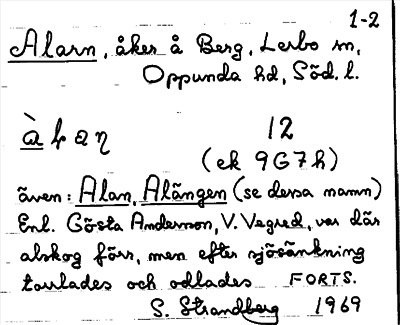 1-2
Alarn, åker å Berg, Lerbo sn,
Oppunda hd, Söd. l.
12
(ek 9G7h)
även: Alan, Alängen (se dessa namn)
Enl. Gösta Andersson, V. Vegred, var där
alskog förr, men efter sjösänkning
torrlades och odlades FORTS.
S. Strandberg 1969